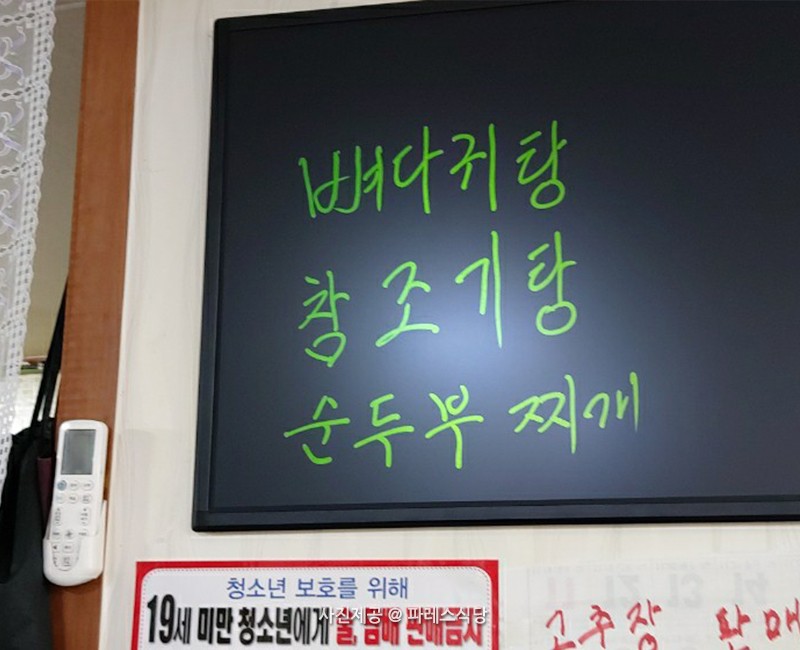 뼈다귀탕
참조기탕
순두부 찌개
청소년 보호를 위해
19세 미만 청소년에게 술, 담배 판매금지
사진제공 @ 파레스식당
고추장 판매